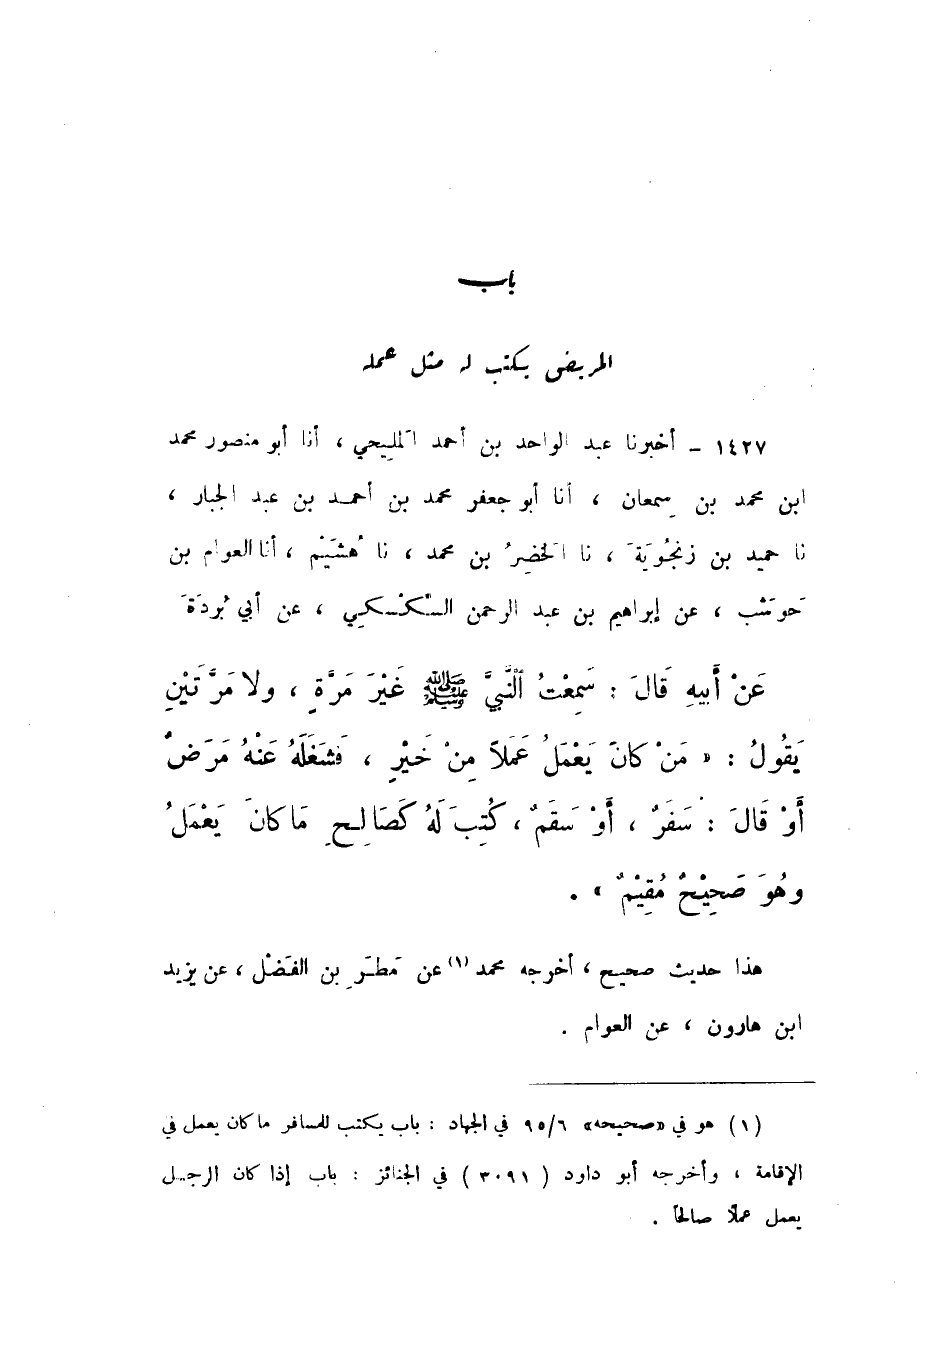 باب
المريض يكتب له مثل عمله
١٤٢٧ – أخبرنا عبد الواحد بن أحمد المَليحي ، أنا أبو منصور محمد
ابن محمد بن سِمعان ، أنا أبو جعفر محمد بن أحمد بن عبد الجبار ،
نا حميد بن زنجُويَةَ ، نا الخَضِرُ بن محمد ، نا هُشَيْم ، أنا العوام بن
حَوشَب ، عن إبراهيم بن عبد الرحمن السَّكْسَكِي ، عن أبي بُردَةَ
عَنْ أَبِيهِ قَالَ : سَمِعْتُ ٱلنَّبِيَّ ﷺ غَيْرَ مَرَّةٍ ، ولا مَرَّتَيْنِ
يَقُولُ : « مَنْ كانَ يَعْمَلُ عَمَلاً مِنْ خَيْرٍ ، فَشَغَلَهُ عَنْهُ مَرَضٌ
أَوْ قَالَ : سَفَرٌ ، أَوْ سَقَمٌ ، كُتِبَ لَهُ كَصَالِحِ مَا كانَ يَعْمَلُ
وهُوَ صَحِيْحٌ مُقِيْمٌ » .
هذا حديث صحيح ، أخرجه محمد (١) عن مَطَرِ بن الفَضْل ، عن يزيد
ابن هارون ، عن العوام .
(١) هو في «صحيحه» ٩٥/٦ في الجهاد : باب يكتب للمسافر ما كان يعمل في
الإقامة ، وأخرجه أبو داود ( ٣٠٩١ ) في الجنائز : باب إذا كان الرجل
يعمل عملًا صالحاً .